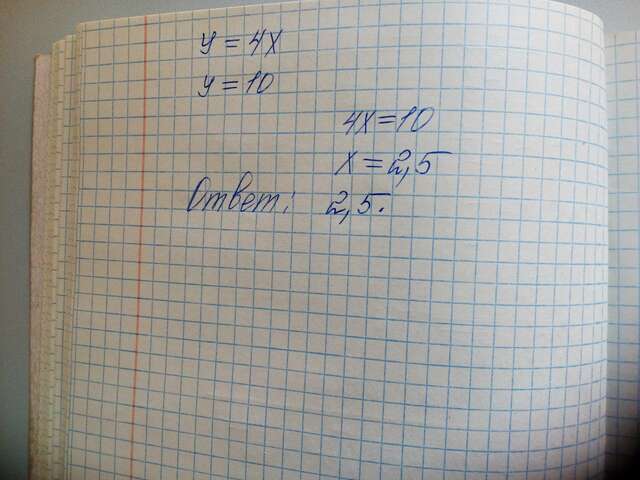 y = 4x
y = 10
4x = 10
x = 2,5
Ответ: 2,5.